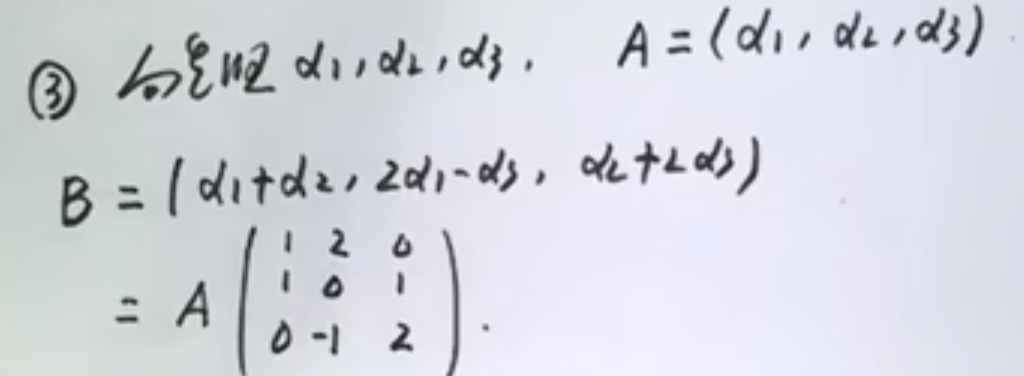 ③ 向量组 α1, α2, α3. A = (α1, α2, α3)
B = (α1+α2, 2α1-α3, α2+2α3)
1 2 0
1 0 1
= A
0 -1 2 .